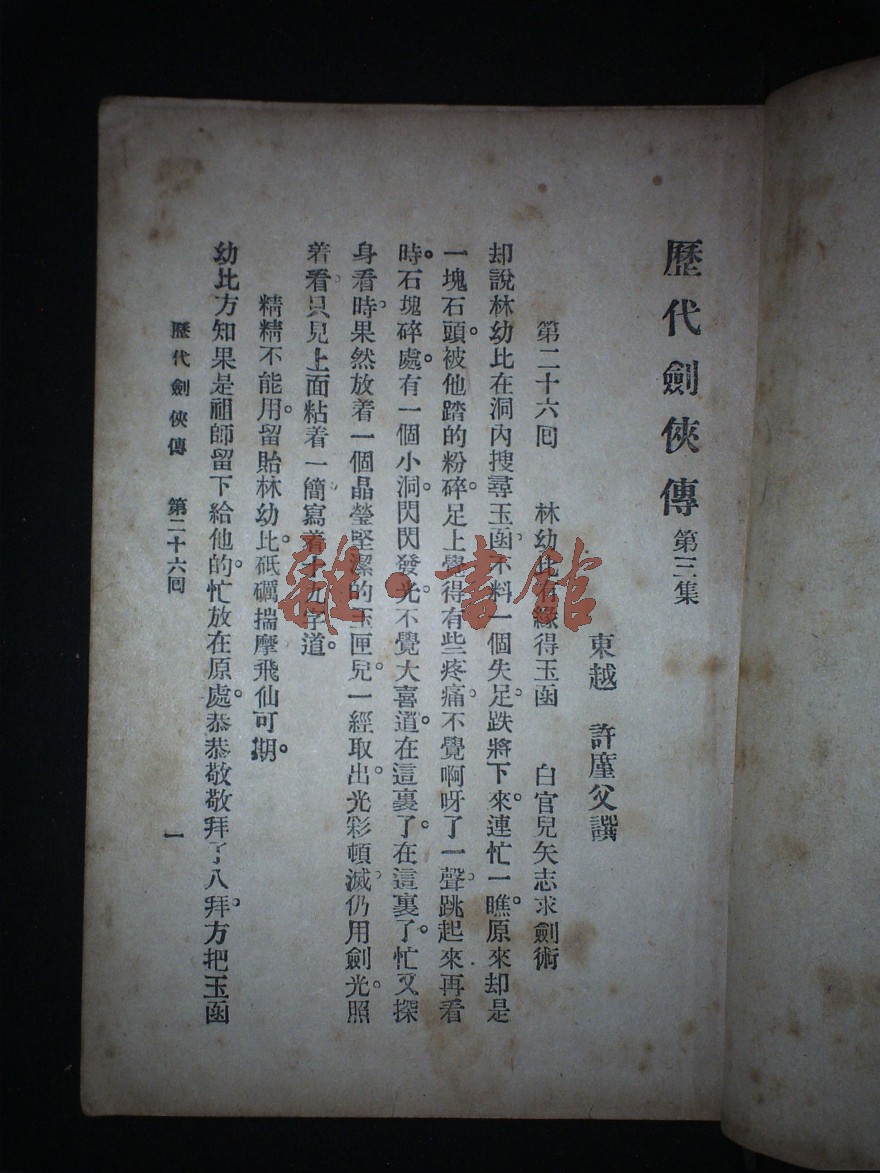 歷代劍俠傳 第三集
東越 許廑父譔
第二十六回 林幼比有緣得玉函 白官兒矢志求劍術
却說林幼比在洞內搜尋玉函。不料一個失足。跌將下來。連忙一瞧。原來却是
一塊石頭。被他踏的粉碎。足上覺得有些疼痛。不覺啊呀了一聲。跳起來再看
時。石塊碎處。有一個小洞。閃閃發光。不覺大喜道。在這裏了。在這裏了。忙又探
身看時。果然放着一個晶瑩堅潔的玉匣兒。一經取出。光彩頓滅。仍用劍光。照
着看。只見上面粘着一簡。寫着十九字道。
精精不能用。留貽林幼比。砥礪揣摩。飛仙可期。
幼比方知果是祖師留下給他的。忙放在原處。恭恭敬敬拜了八拜。方把玉函
歷代劍俠傳 第二十六回 一
雜·書館